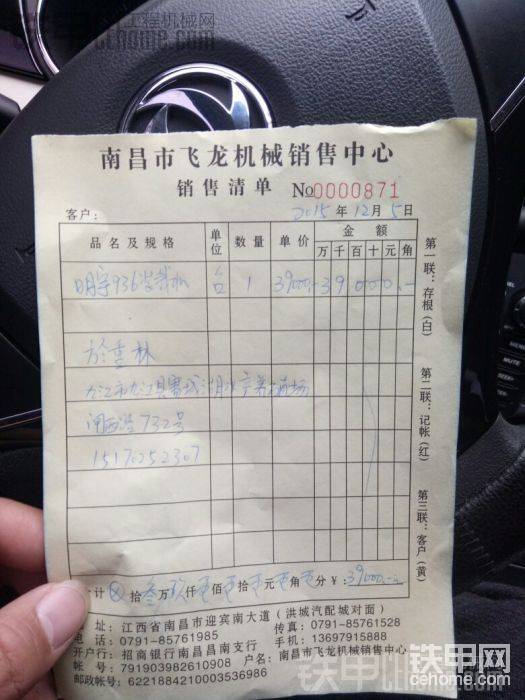 工程机械网
cehome.com
南昌市飞龙机械销售中心
销售清单 No0000871
客户： 2015年12月5日
品名及规格 单位 数量 单价 金额
万 千 百 十 元 角
明宇936装载机 台 1 39000.- 3 9 0 0 0 .-
於重林
九江市九江县赛城湖水产养殖场
闸西路732号
15170252307
计 ⊗ 拾叁万玖仟零佰零拾零元零角零分 ¥：39000.-
址：江西省南昌市迎宾南大道（洪城汽配城对面）
电话：0791-85761985 传真：0791-85761528
开户行：招商银行南昌昌南支行 手机：13697915888
帐号：791903982610908 户名：南昌市飞龙机械销售中心
邮政帐号：6221884210003536986
第一联：存根（白）
第二联：记帐（红）
第三联：客户（黄）
铁甲网
cehome.com